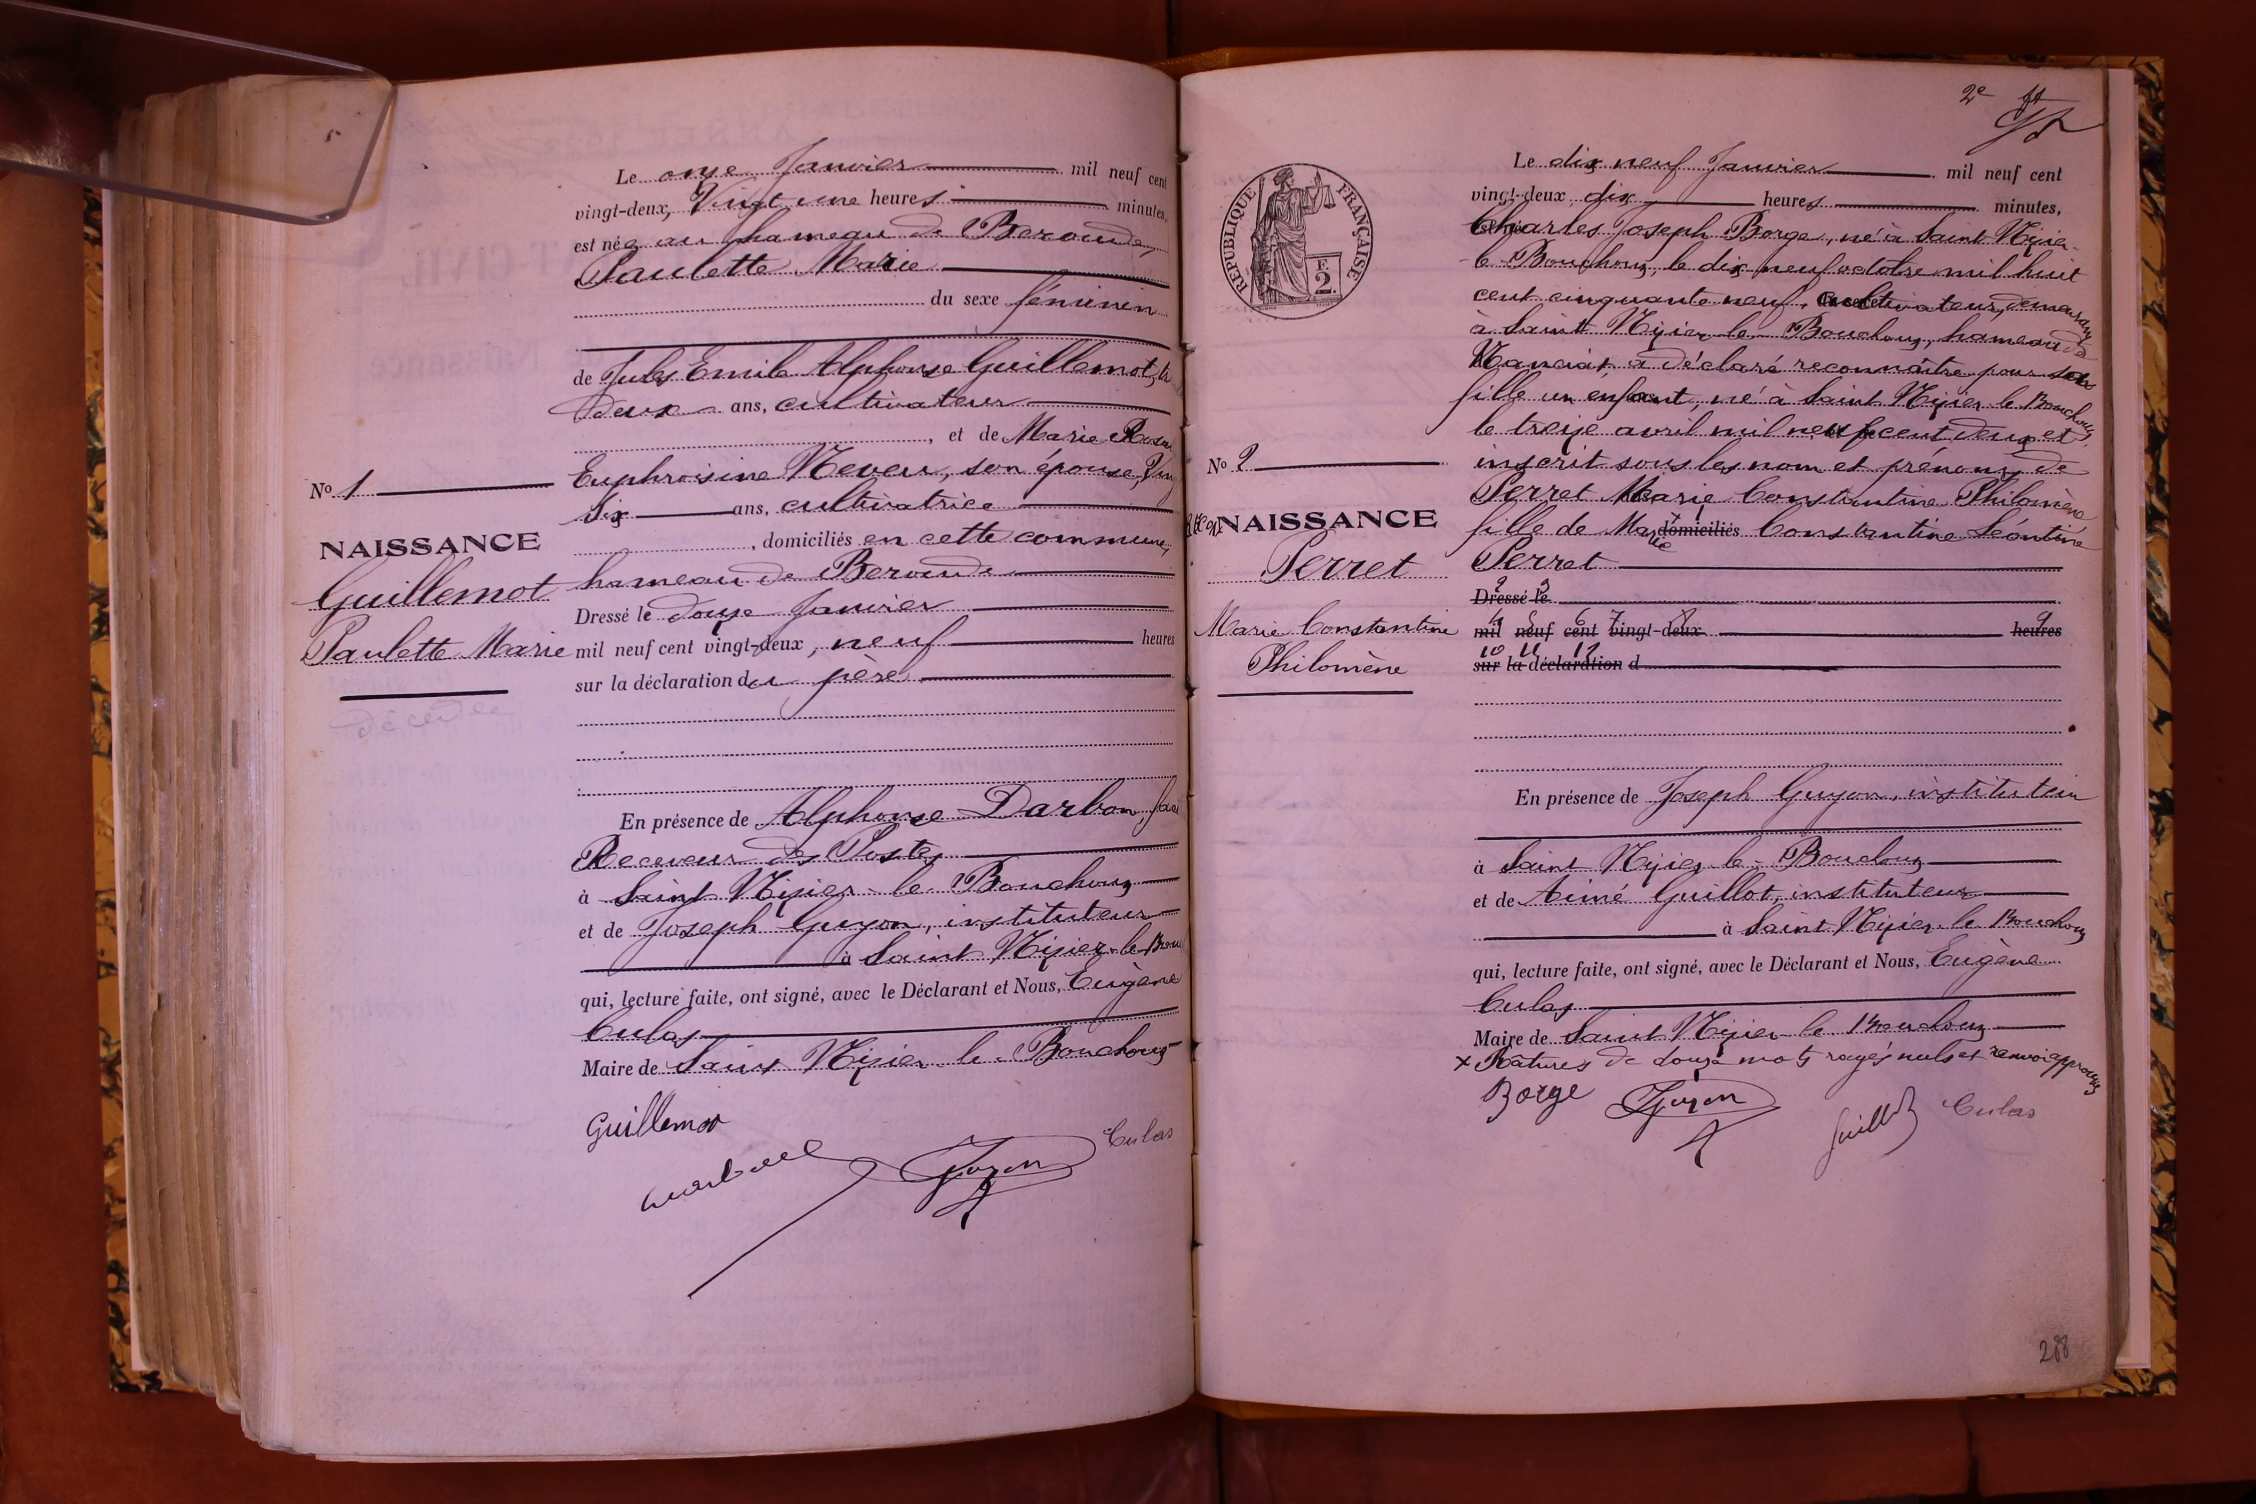 Le onze Janvier mil neuf cent
vingt-deux, Vingt une heures minutes,
est née au hameau de Beroude,
Paulette Marie
du sexe féminin
de Jules Emile Alphonse Guillemot,
deux ans, cultivateur
, et de Marie
Euphroisine Neveu, son épouse,
Six ans, cultivatrice
, domiciliés en cette commune,
hameau de Beroude
Dressé le douze Janvier
mil neuf cent vingt-deux, neuf heures
sur la déclaration du père
En présence de Alphonse Darbon,
Receveur des Postes
à Saint Nizier-le-Bouchoux
et de Joseph Guyon, instituteur
à Saint Nizier-le-Bou
qui, lecture faite, ont signé, avec le Déclarant et Nous, Eugène
Culas
Maire de Saint Nizier le Bouchoux
Guillemot
Guyon
Culas
No 1
NAISSANCE
Guillemot
Paulette Marie
décédée
2e
RÉPUBLIQUE FRANÇAISE
E.
2.
No 2
NAISSANCE
Perret
Marie Constantine
Philomène
Le dix neuf Janvier mil neuf cent
vingt-deux dix heures minutes,
Charles Joseph Borge, né à Saint Nizier-
le-Bouchoux, le dix neuf octobre mil huit
cent cinquante neuf, cultivateur, demeurant
à Saint Nizier le Bouchoux, hameau de
Nanciat, a déclaré reconnaître pour sa
fille un enfant, né à Saint Nizier le Bouchoux
le treize avril mil neuf cent deux et
inscrit sous les nom et prénoms de
Perret Marie Constantine Philomène
fille de Marie domiciliés Constantine Léontine
Perret
2 3
Dressé le
4 5 6 7 8 9
mil neuf cent vingt-deux heures
10 11 12
sur la déclaration d
En présence de Joseph Guyon, instituteur
à Saint Nizier le-Bouchoux
et de Aimé Guillot, instituteur
à Saint Nizier le Bouchoux
qui, lecture faite, ont signé, avec le Déclarant et Nous, Eugène
Culas
Maire de Saint Nizier le Bouchoux
x Ratures de douze mots rayés nuls et renvoi approuvés
Borge Guyon Guillot Culas
288